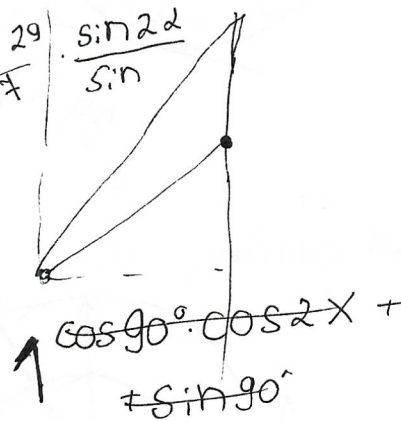 29/7 · sin2α/sin
1 cos90°·cos2x +
+sin90°